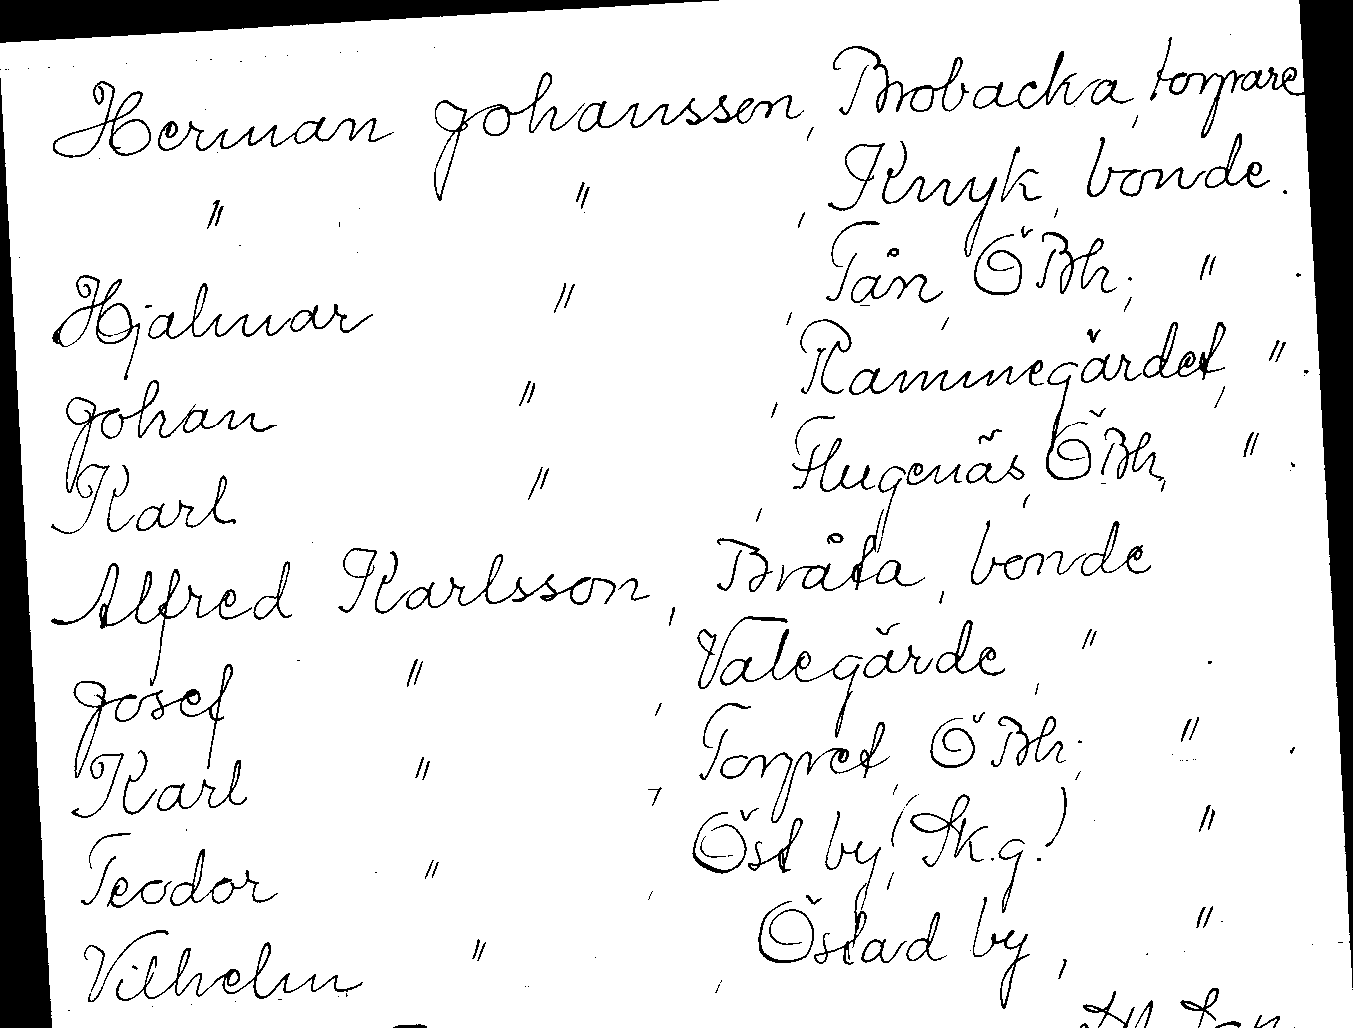 Herman Johansson, Brobacka, torpare
" " , Knyk, bonde.
Hjalmar " , Tån, ÖBh., " .
Johan " , Rammegärdet, " .
Karl " , Flugenäs, ÖBh, " .
Alfred Karlsson, Bråta, bonde
Josef " , Valegärde, " .
Karl " , Torpret, ÖBh; " .
Teodor " , Öst by, (Sk.g.) "
Vilhelm " , Östad by, "